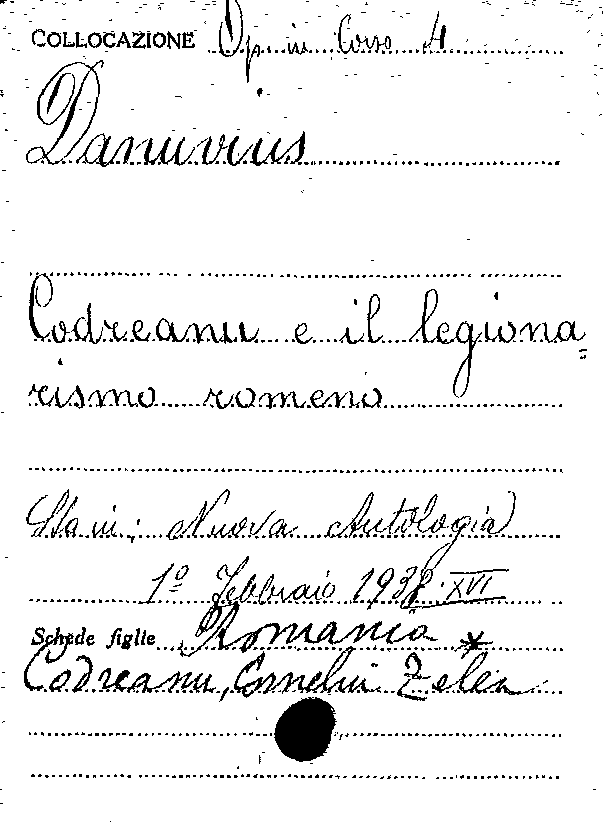 COLLOCAZIONE Op. in Corso 4
Danuvius
Codreanu e il legiona=
rismo romeno
Sta in: Nuova Antologia
1º Febbraio 1938·XVI
Schede figlie Romania *
Codreanu, Corneliu Zelea